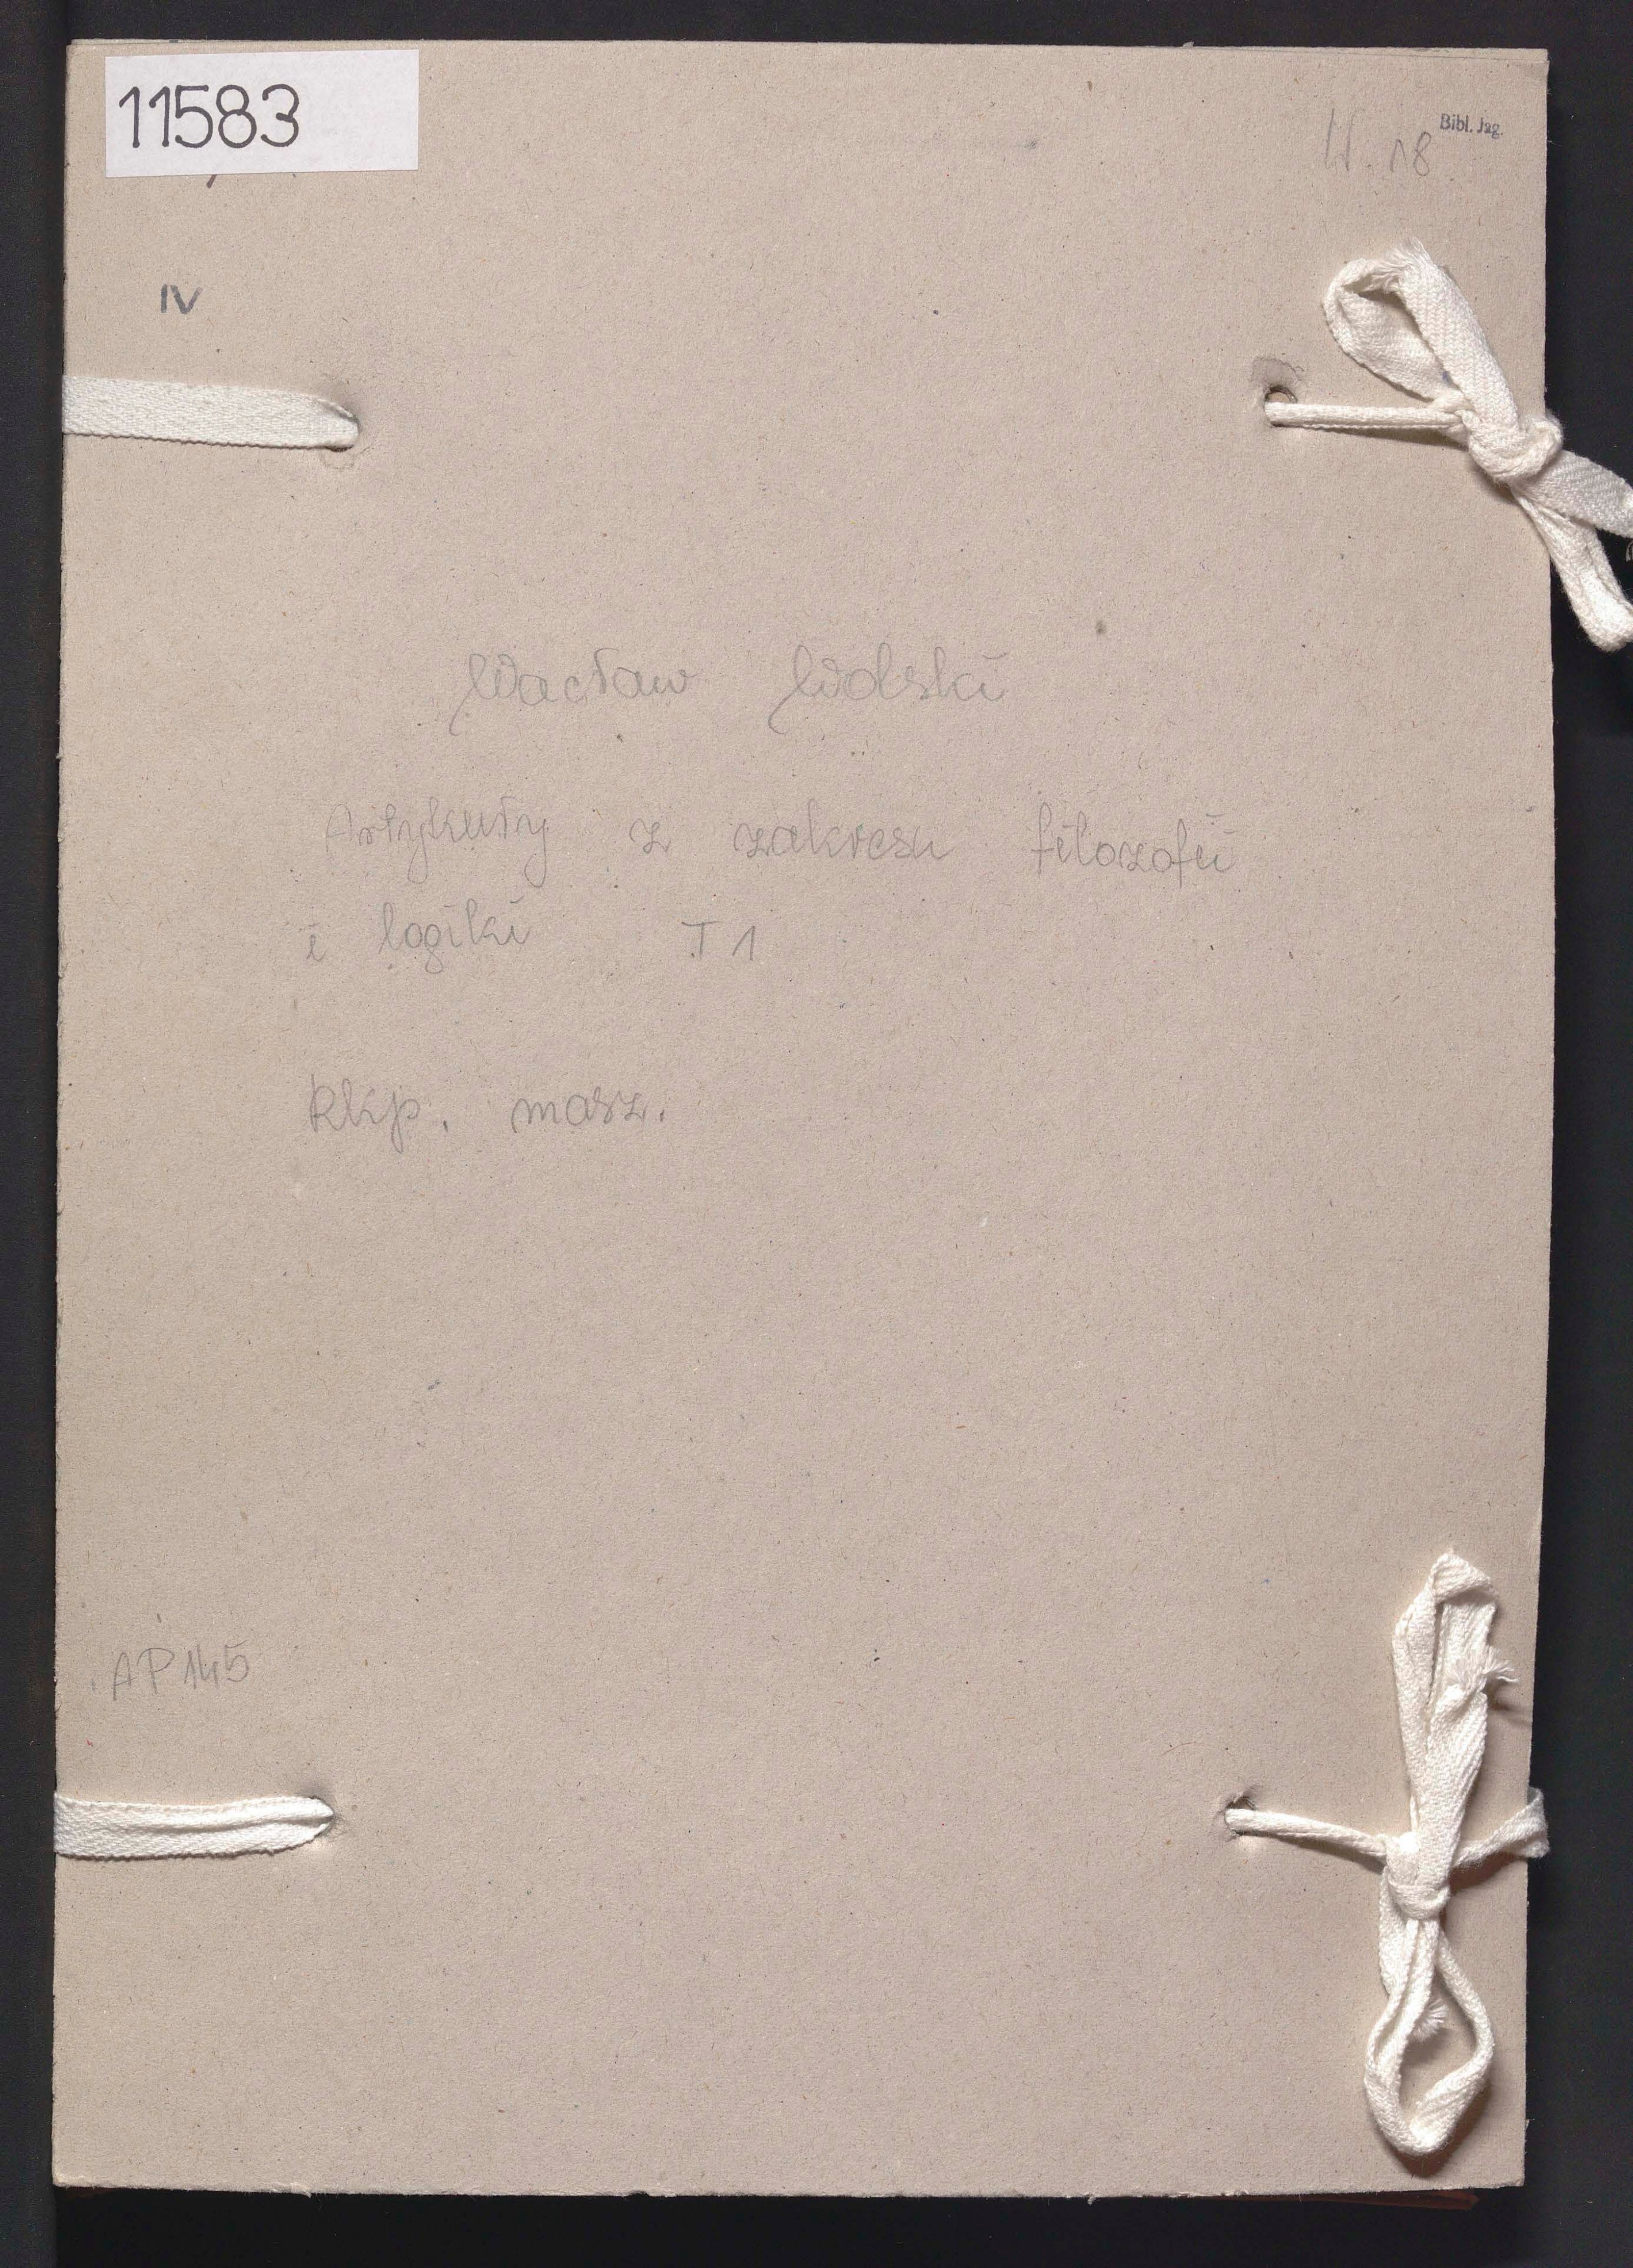 11583
Bibl. Jag.
W. 18
IV
Wacław Wolski
Artykuły z zakresu filozofii
i logiki T 1
Rkp. masz.
AP 145